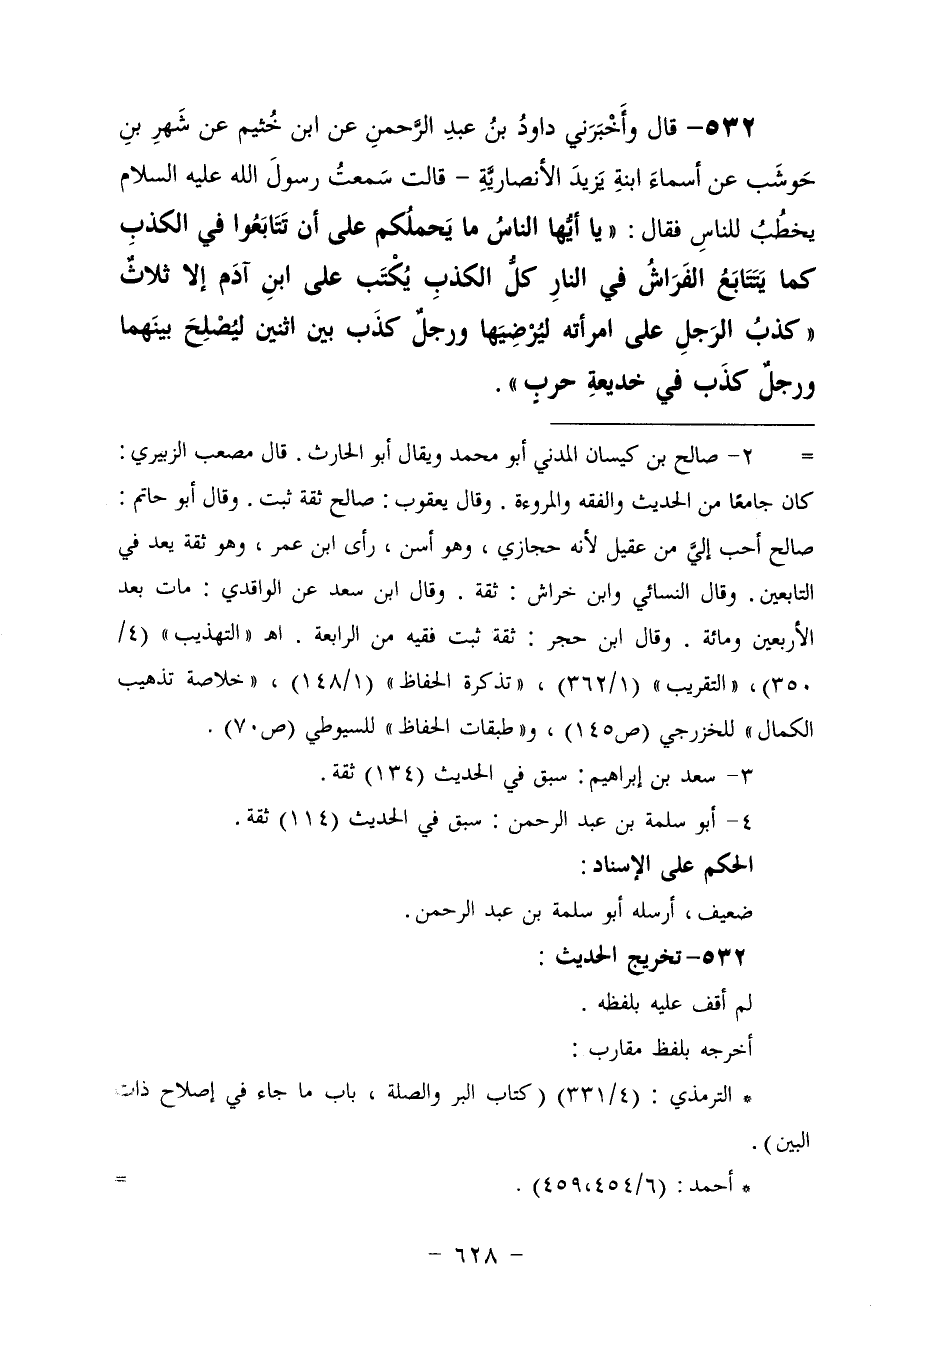 ٥٣٢- قال وأَخْبَرَني داودُ بنُ عبدِ الرَّحمنِ عن ابن خُثيم عن شَهرِ بنِ
حَوشَب عن أسماءَ ابنةِ يَزيدَ الأنصاريَّةِ - قالت سَمعتُ رسولَ الله عليه السلام
يخطُبُ للناسِ فقال : « يا أيُّها الناسُ ما يَحملُكم على أن تَتَابَعُوا في الكذبِ
كما يَتَتَابَعُ الفَرَاشُ في النارِ كلُّ الكذبِ يُكْتَب على ابنِ آدَم إلا ثلاثٌ
« كذبُ الرَجلِ على امرأته ليُرْضِيَها ورجلٌ كذَب بين اثنين ليُصْلِحَ بينَهما
ورجلٌ كذَب في خديعةِ حربٍ » .
= ٢- صالح بن كيسان المدني أبو محمد ويقال أبو الحارث . قال مصعب الزبيري :
كان جامعًا من الحديث والفقه والمروءة . وقال يعقوب : صالح ثقة ثبت . وقال أبو حاتم :
صالح أحب إليَّ من عقيل لأنه حجازي ، وهو أسن ، رأى ابن عمر ، وهو ثقة يعد في
التابعين . وقال النسائي وابن خراش : ثقة . وقال ابن سعد عن الواقدي : مات بعد
الأربعين ومائة . وقال ابن حجر : ثقة ثبت فقيه من الرابعة . اهـ «التهذيب» (٤/
٣٥٠)، «التقريب» (٣٦٢/١) ، «تذكرة الحفاظ» (١٤٨/١) ، «خلاصة تذهيب
الكمال» للخزرجي (ص١٤٥) ، و«طبقات الحفاظ» للسيوطي (ص٧٠) .
٣- سعد بن إبراهيم : سبق في الحديث (١٣٤) ثقة .
٤- أبو سلمة بن عبد الرحمن : سبق في الحديث (١١٤) ثقة .
الحكم على الإسناد :
ضعيف ، أرسله أبو سلمة بن عبد الرحمن .
٥٣٢- تخريج الحديث :
لم أقف عليه بلفظه .
أخرجه بلفظ مقارب :
* الترمذي : (٣٣١/٤) (كتاب البر والصلة ، باب ما جاء في إصلاح ذات
البين) .
* أحمد : (٤٥٩،٤٥٤/٦) . =
- ٦٢٨ -